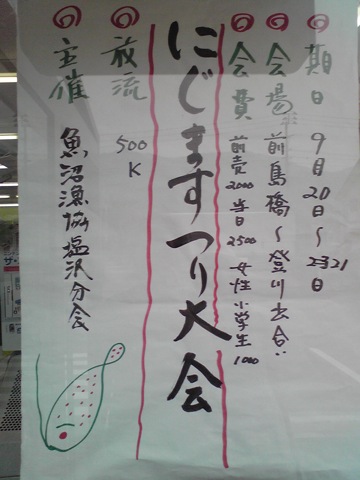 期日 9月20日〜
会場 前島橋〜登川出合い
会費 前売2000 当日2500 女性小学生1000
にじますつり大会
放流 500K
主催 魚沼漁協塩沢分会